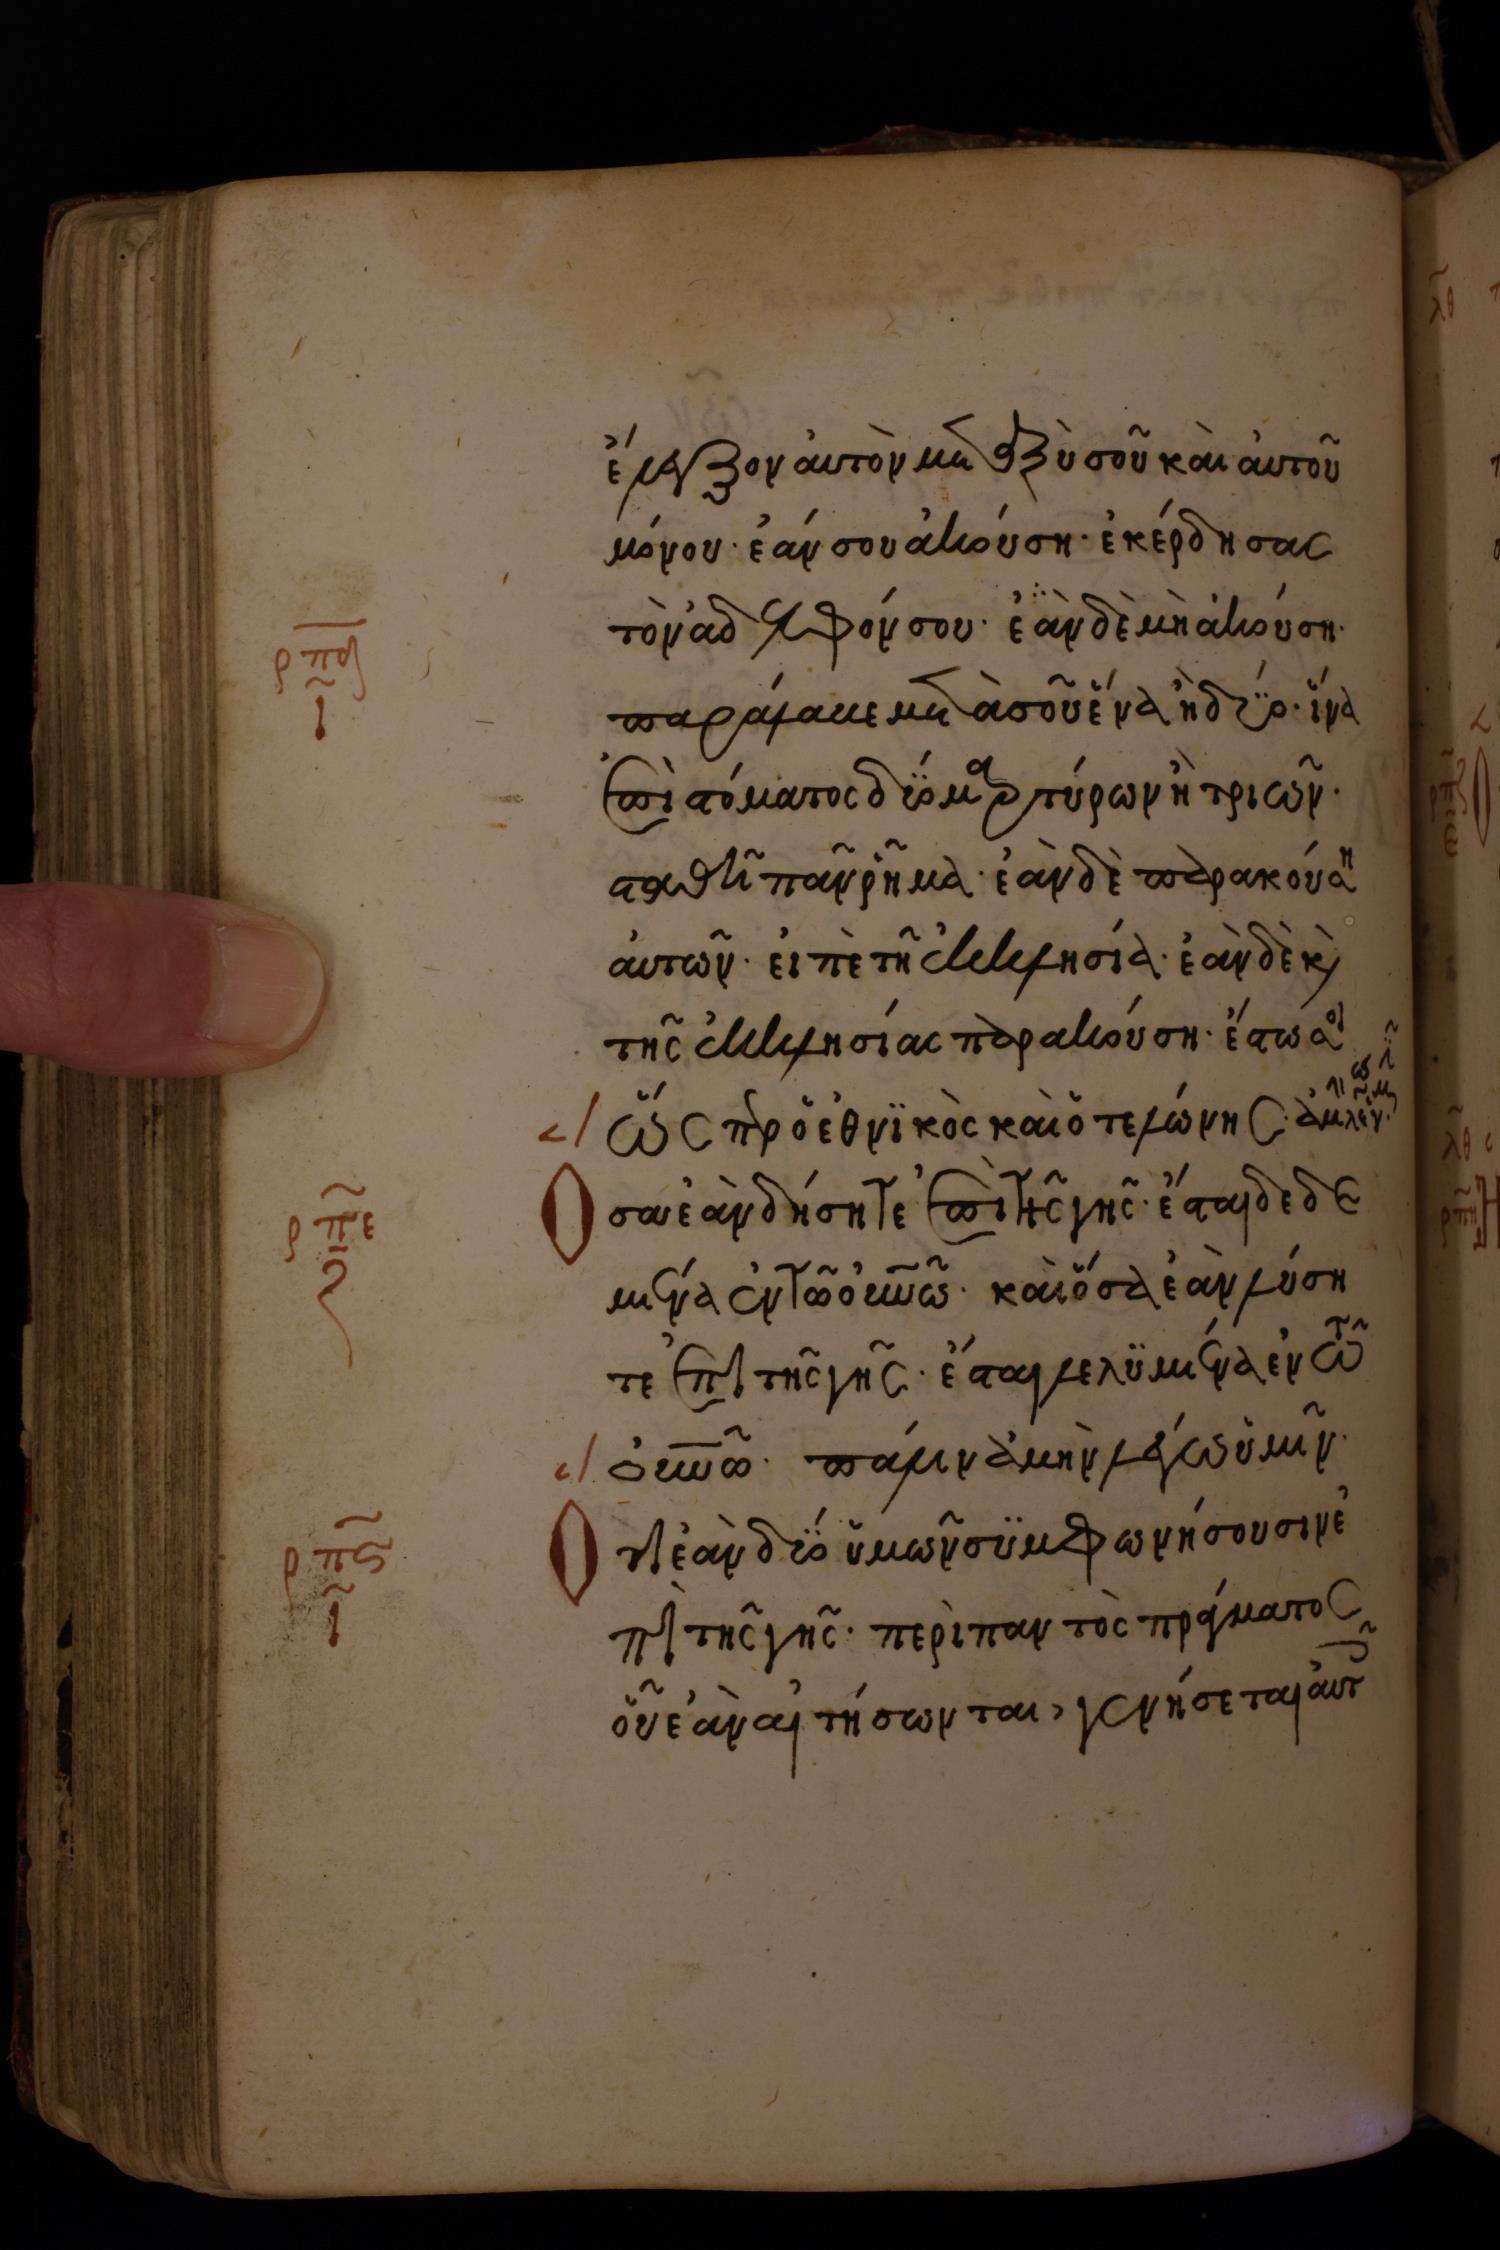 ἔλεγξον ἀυτὸν μετ ξὺ σοῦ καὶ ἀυτοῦ
μόνου· ἐάν σου ἀκούση· ἐκέρδησας
τὸν ἀδελφόν σου· ἐὰν δὲ μὴ ἀκούση·
παράλαβε μετὰ σοῦ ἕνὰ ἢ δύο· ἵνὰ
ἐπὶ στόματος δύο μαρτύρων ἢ τριῶν·
σταθῆ πᾶν ῥῆμὰ· ἐὰν δὲ πὰρακούση
ἀυτῶν· ειπὲ τῆ ἐκκλησίὰ· ἐὰν δὲ κὶ
τῆς ἐκκλησίας πὰρακούση· ἔστω σοὶ
ὥσπερ ὁ ἐθνϊκὸς καὶ ὁ τελώνης·
ρπδ
ι
Ὅσα ἐὰν δήσητε ἐπὶ τῆς γῆς· ἔσται δεδε
ρπε
ζ
μένὰ ἐν τῶ ὀυνῶ· καὶ ὅσὰ ἐὰν λύση
τε ἐπὶ τῆς γῆς· ἔσται λελϋμένὰ ἐν τῶ
ὀυνῶ· πάλιν ἀμὴν λέγω ὑμῖν·
Ὅτι ἐὰν δύο ὑμῶν σϋμφωνήσουσιν ἐ
ρπς
ι
πὶ τῆς γῆς· περὶ παντὸς πράγματος
οὗ ἐὰν αἰτήσωνται, γενήσεται ἀυτ